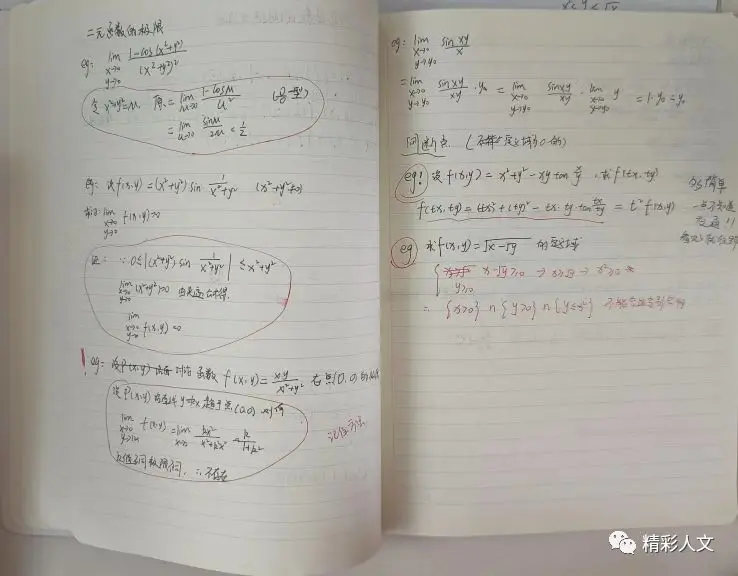 二元函数的极限
eg: lim x→0 y→0 1-cos(x²+y²) / (x²+y²)²
令 x²+y²=u 原=lim u→0 1-cosu / u² (0/0型)
= lim u→0 sinu / 2u = 1/2
eg: 设f(x,y)=(x²+y²)sin 1/x²+y² (x²+y²≠0)
求证 lim x→0 y→0 f(x,y)=0
证: ∵ 0≤|(x²+y²)sin 1/x²+y²| ≤x²+y²
lim x→0 y→0 (x²+y²)=0 由夹逼
lim x→0 y→0 f(x,y)=0
! eg: 讨论函数 f(x,y)= xy / x²+y² 在点(0,0)的
设P(x,y)沿 y=kx 趋于点(0,0)
lim x→0 f(x,y)=lim x→0 kx² / x²+k²x² = k / 1+k²
k值不同极限不同, ∴不存在
记住方法
eg: lim x→0 y→y₀ sinxy / x
= lim x→0 y→y₀ sinxy / xy · y₀ = lim x→0 y→y₀ sinxy / xy · lim x→0 y→y₀ y = 1·y₀=y₀
间断点.
eg! 设 f(x,y)=x²+y²-xy tan x/y, 求f(tx,ty)
f(tx,ty)=(tx)²+(ty)²-tx·ty·tan tx/ty = t²f(x,y)
简单
eg 求f(x,y)=√x-√y 的定义域
x-√y≥0 → x≥√y → x²≥y
y≥0
∴ {x≥0} ∩ {y≥0} ∩ {y≤x²}
精彩人文